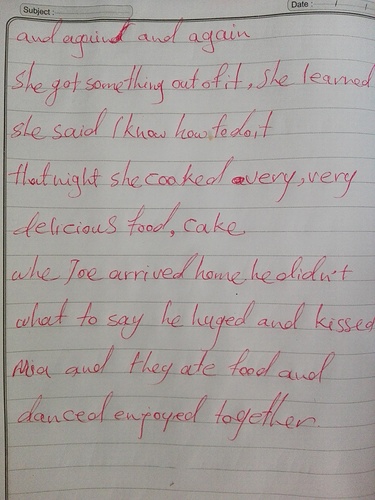 Subject :
Date : / /
and again and again
she got something out of it, she learned
she said I know how to do it
that night she cooked a very, very
delicious food, cake.
whe Joe arrived home. he didn't
what to say he huged and kissed
Mia and they ate food and
danced enjoyed together.